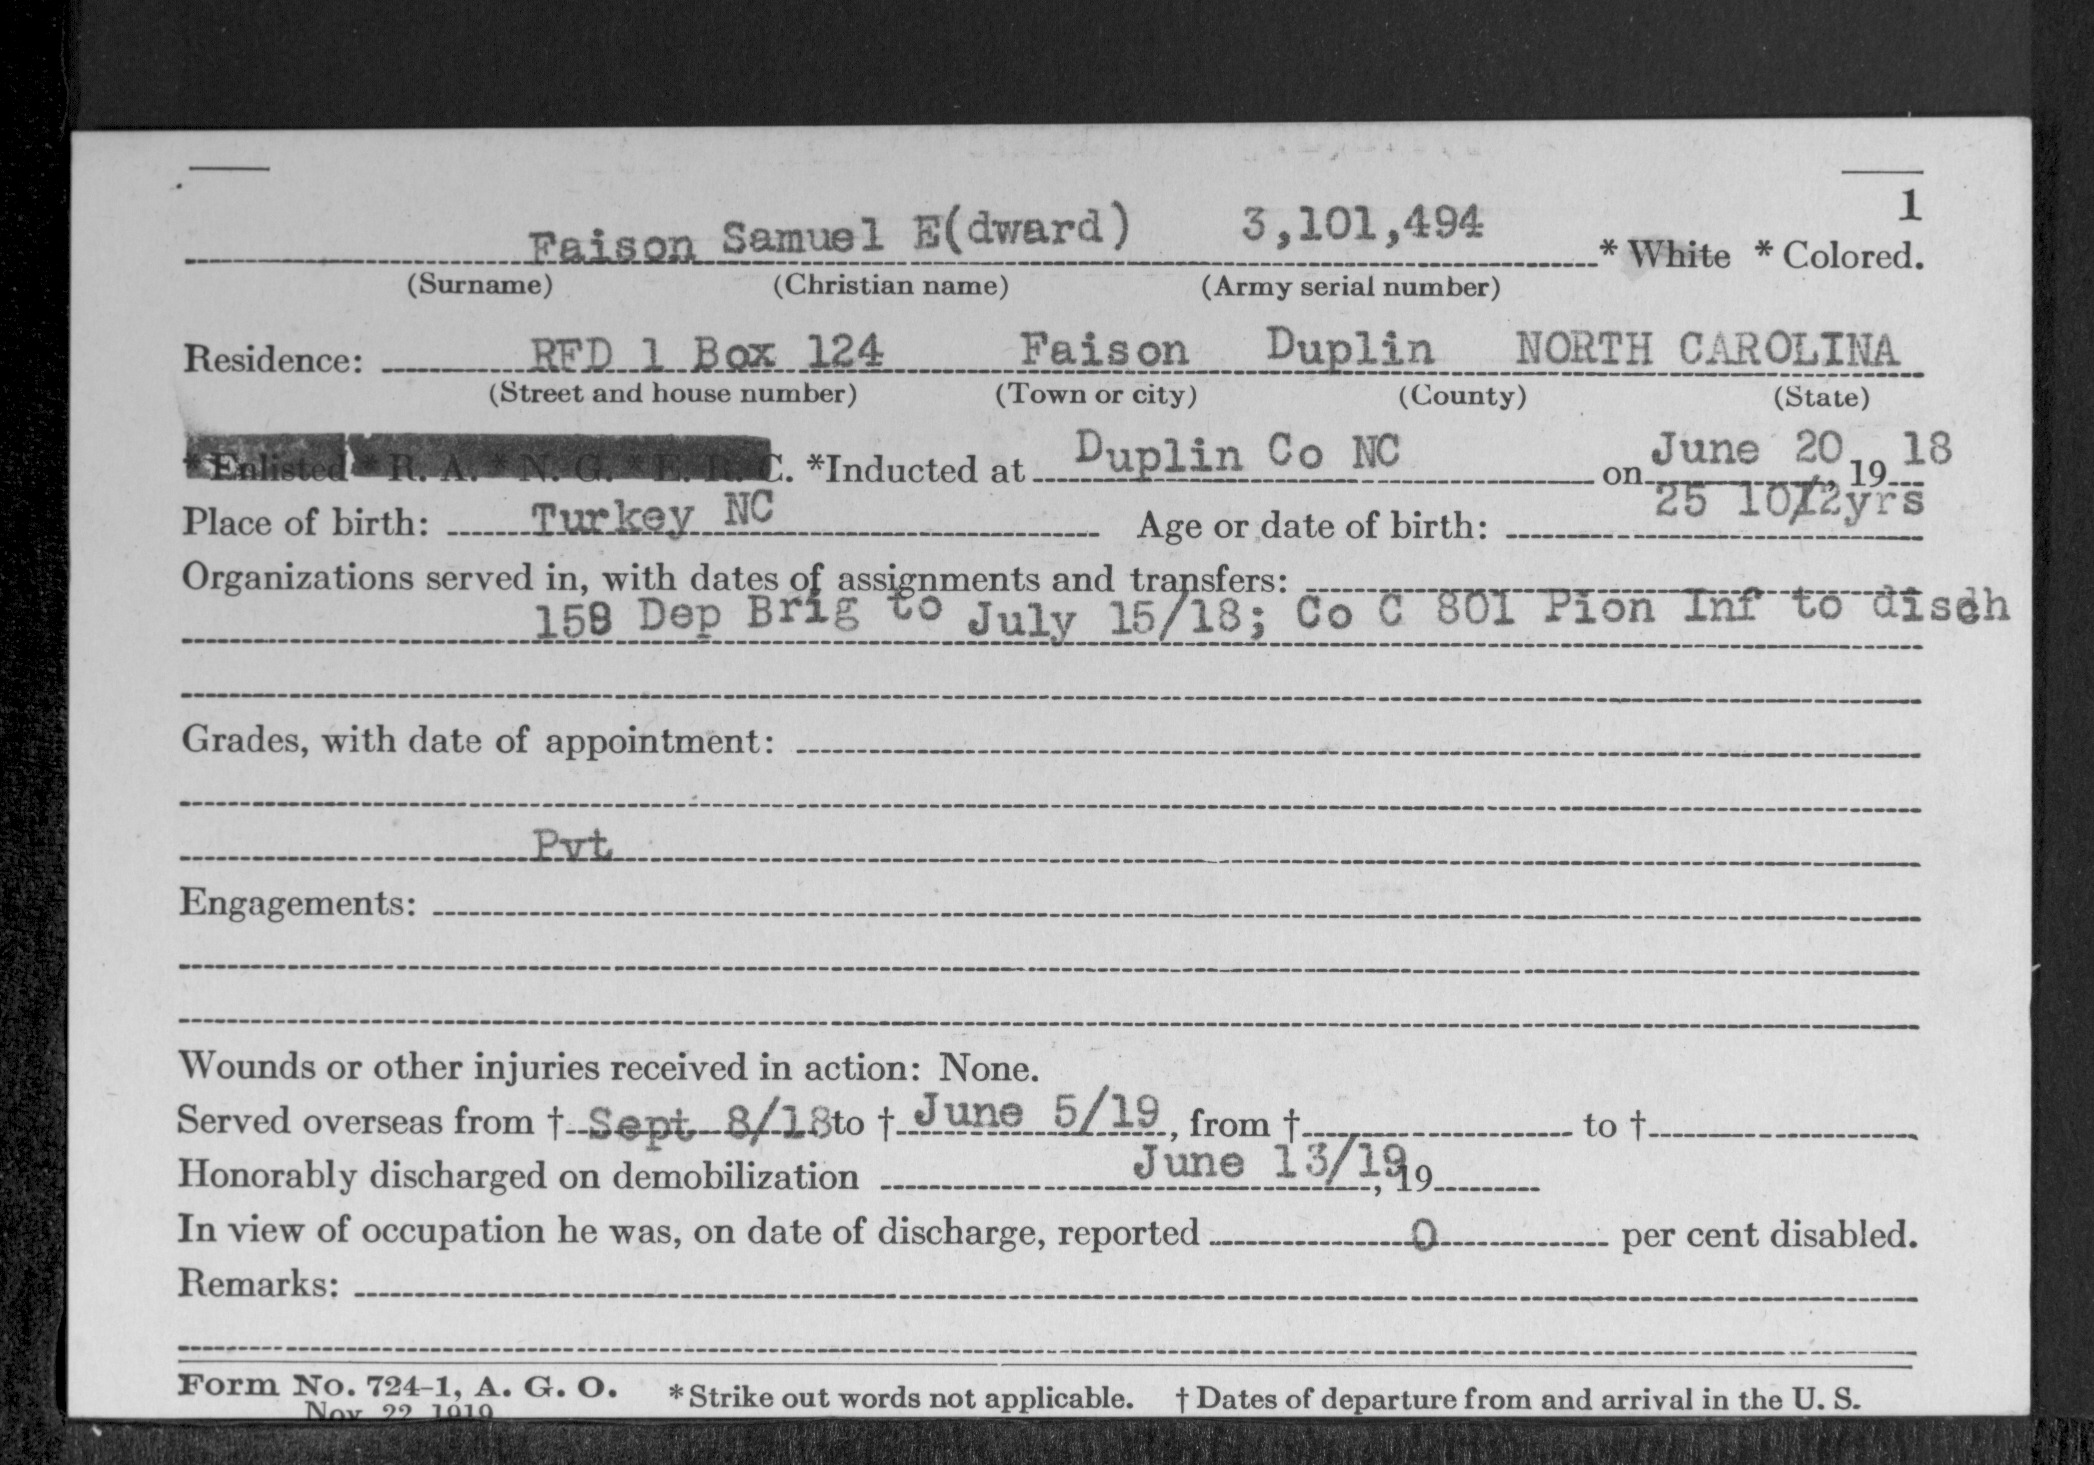 1
Faison Samuel E(dward) 3,101,494 * White * Colored.
(Surname) (Christian name) (Army serial number)
Residence: RFD 1 Box 124 Faison Duplin NORTH CAROLINA
(Street and house number) (Town or city) (County) (State)
*Enlisted * R. A. * N. G. * E. R. C. *Inducted at Duplin Co NC on June 20, 19 18
Place of birth: Turkey NC Age or date of birth: 25 10/12yrs
Organizations served in, with dates of assignments and transfers:
Dep Brig to July 15/18; Co C 801 Pion Inf to disch
Grades, with date of appointment:
Pvt
Engagements:
Wounds or other injuries received in action: None.
Served overseas from † Sept 8/18 to † June 5/19, from † to †
Honorably discharged on demobilization June 13/19, 19
In view of occupation he was, on date of discharge, reported 0 per cent disabled.
Remarks:
Form No. 724-1, A. G. O. * Strike out words not applicable. † Dates of departure from and arrival in the U. S.
Nov. 22, 1919